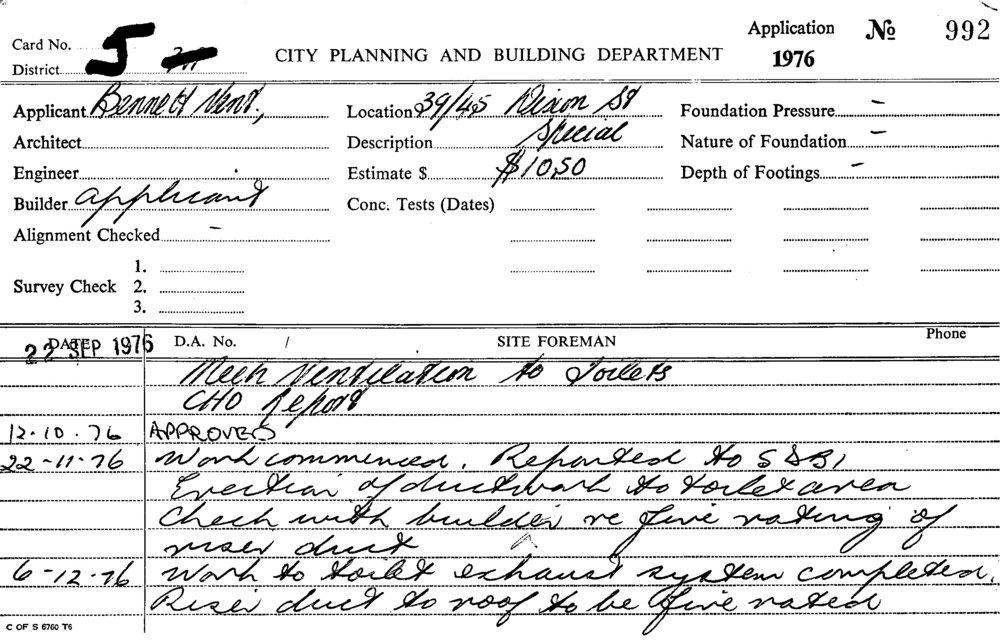 Card No. 5
District
CITY PLANNING AND BUILDING DEPARTMENT
Application No 992
1976
Applicant Bennett Vent.,
Location 39/45 Dixon St
Foundation Pressure –
Architect
Description Special
Nature of Foundation –
Engineer
Estimate $ $1050
Depth of Footings –
Builder applicant
Conc. Tests (Dates)
Alignment Checked –
Survey Check
1.
2.
3.
DATE 22 SEP 1976
D.A. No. /
SITE FOREMAN
Phone
Mech Ventilation to Toilets
CHO Report
12.10.76 APPROVED
22-11-76 Work commenced. Reported to S&BI
Erection of ductwork to toilet area
Check with builder re fire rating of
riser duct
6-12-76 Work to toilet exhaust system completed.
Riser duct to roof to be fire rated
C OF S 6760 T6